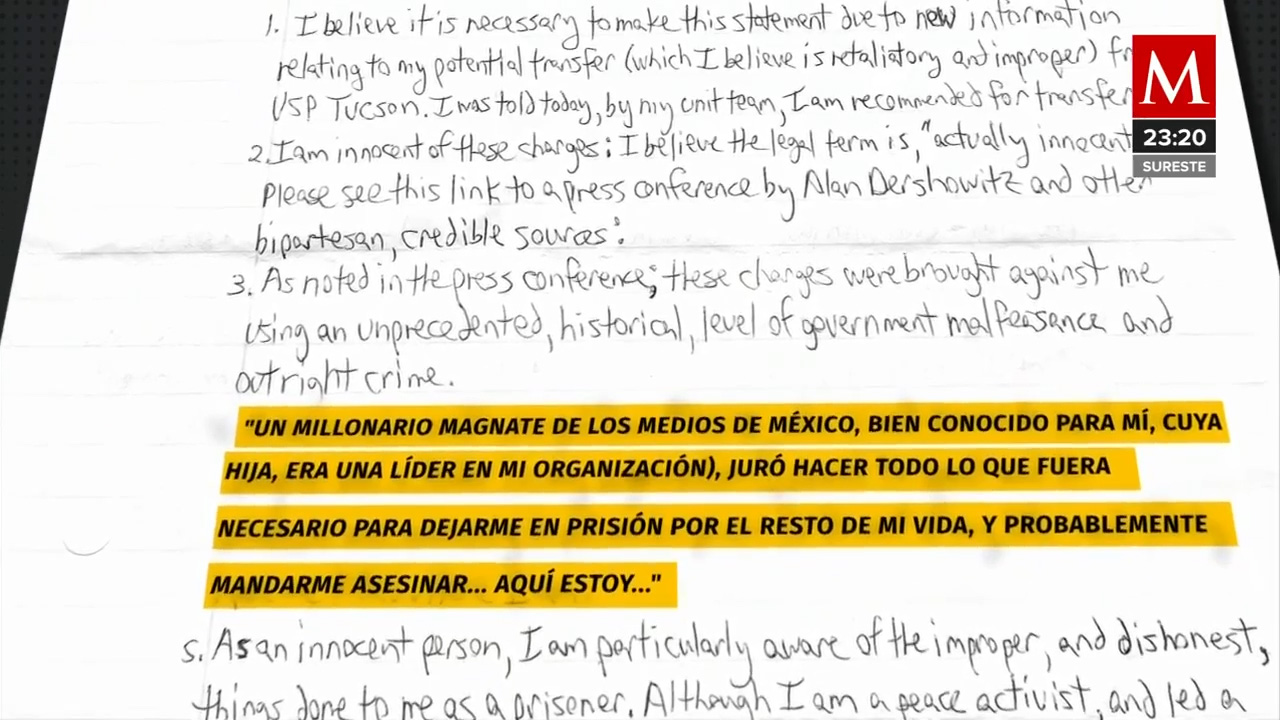 1. I believe it is necessary to make this statement due to new information
relating to my potential transfer (which I believe is retaliatory and improper) fr
USP Tucson. I was told today, by my unit team, I am recommended for transfer
2. I am innocent of these charges; I believe the legal term is, "actually innocent
Please see this link to a press conference by Alan Dershowitz and other
bipartesan, credible sources":
3. As noted in the press conference; these charges were brought against me
using an unprecedented, historical, level of government malfeasance and
outright crime.
"UN MILLONARIO MAGNATE DE LOS MEDIOS DE MÉXICO, BIEN CONOCIDO PARA MÍ, CUYA
HIJA, ERA UNA LÍDER EN MI ORGANIZACIÓN), JURÓ HACER TODO LO QUE FUERA
NECESARIO PARA DEJARME EN PRISIÓN POR EL RESTO DE MI VIDA, Y PROBABLEMENTE
MANDARME ASESINAR... AQUÍ ESTOY..."
5. As an innocent person, I am particularly aware of the improper, and dishonest,
things done to me as a prisoner. Although I am a peace activist, and led a
M
23:20
SURESTE